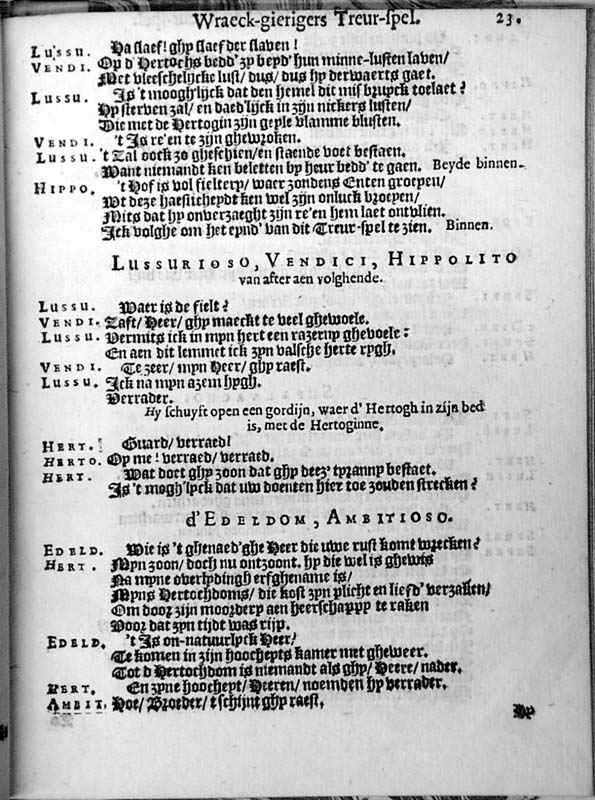 Wraeck-gierigers Treur-spel. 23.
LUSSU. Ha slaef! ghy slaef der slaven!
VENDI. Op d'Hertoghs bedd' zy beyd' hun minne-lusten laven/
Met vleeschelijcke lust/ dus/ dus hy derwaerts gaet.
LUSSU. Is 't moogh'lijck dat den hemel dit misbruyck toelaet?
Hy sterven zal/ en daed'lijck in zijn nickers lusten/
Die met de Hertogin zijn geyle vlamme blusten.
VENDI. 't Is re'en te zijn ghewroken.
LUSSU. 't Zal oock zo gheschien/ en staende voet bestaen.
Want niemandt ken beletten by heur bedd' te gaen. Beyde binnen.
HIPPO. 't Hof is vol fielterp/ waer zondens Enten groeyen/
Wt deze haesticheydt ken wel zijn onluck vroeyen/
Mits dat hy onverzaeght zijn re'en hem laet ontvlien.
Ick volghe om het eynd' van dit Treur-spel te zien. Binnen.
LUSSURIOSO, VENDICI, HIPPOLITO
van after aen volghende.
LUSSU. Waer is de fielt?
VENDI. Zaft/ Heer/ ghy maeckt te veel ghewoele.
LUSSU. Vermits ick in myn hert een razerny ghevoele:
En aen dit lemmet ick zyn valsche herte rygh.
VENDI. Te zeer/ myn Heer/ ghy raest.
LUSSU. Ick na myn azem hygh.
Verrader.
Hy schuyft open een gordijn, waer d' Hertogh in zijn bed
is, met de Hertoginne.
HERT. Guard/ verraed!
HERTO. Op me! verraed/ verraed.
HERT. Wat doet ghy zoon dat ghy deez' tyranny bestaet.
Is 't mogh'lyck dat uw doenten hier toe zouden strecken?
d'EDELDOM, AMBITIOSO.
EDELD. Wie is 't ghenaed'ghe Heer die uwe rust komt wrecken?
HERT. Myn zoon/ doch nu ontzoont. hy die wel is ghewis
Na myne overlydingh erfghename is/
Myns Hertochdoms/ die kost zyn plicht en liefd' verzaken/
Om door zijn moordery aen heerschappy te raken
Voor dat zyn tijdt was rijp.
EDELD. 't Is on-natuurlyck Heer/
Te komen in zijn hoocheyts kamer met gheweer.
Tot d'Hertochdom is niemandt als ghy/ Heere/ nader.
HERT. En zyne hoocheyt/ Heeren/ noemden hy verrader.
AMBIT. Hoe/ Broeder/ t schijnt ghy raest.